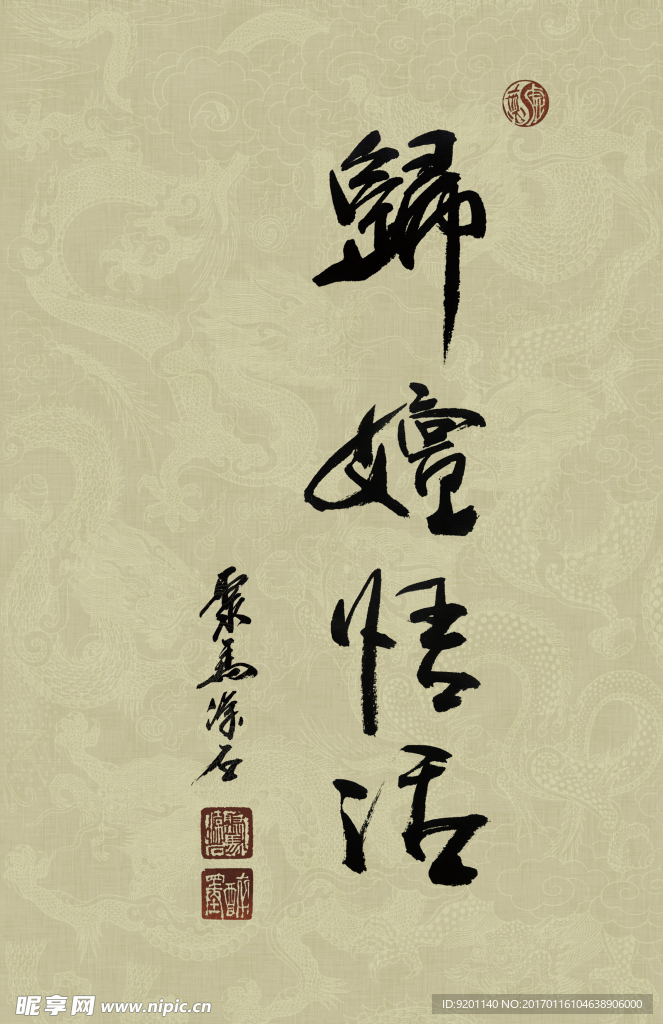 歸嬗悟活
聚馬石
醉墨
昵享网 www.nipic.cn
ID:9201140 NO:20170116104638906000